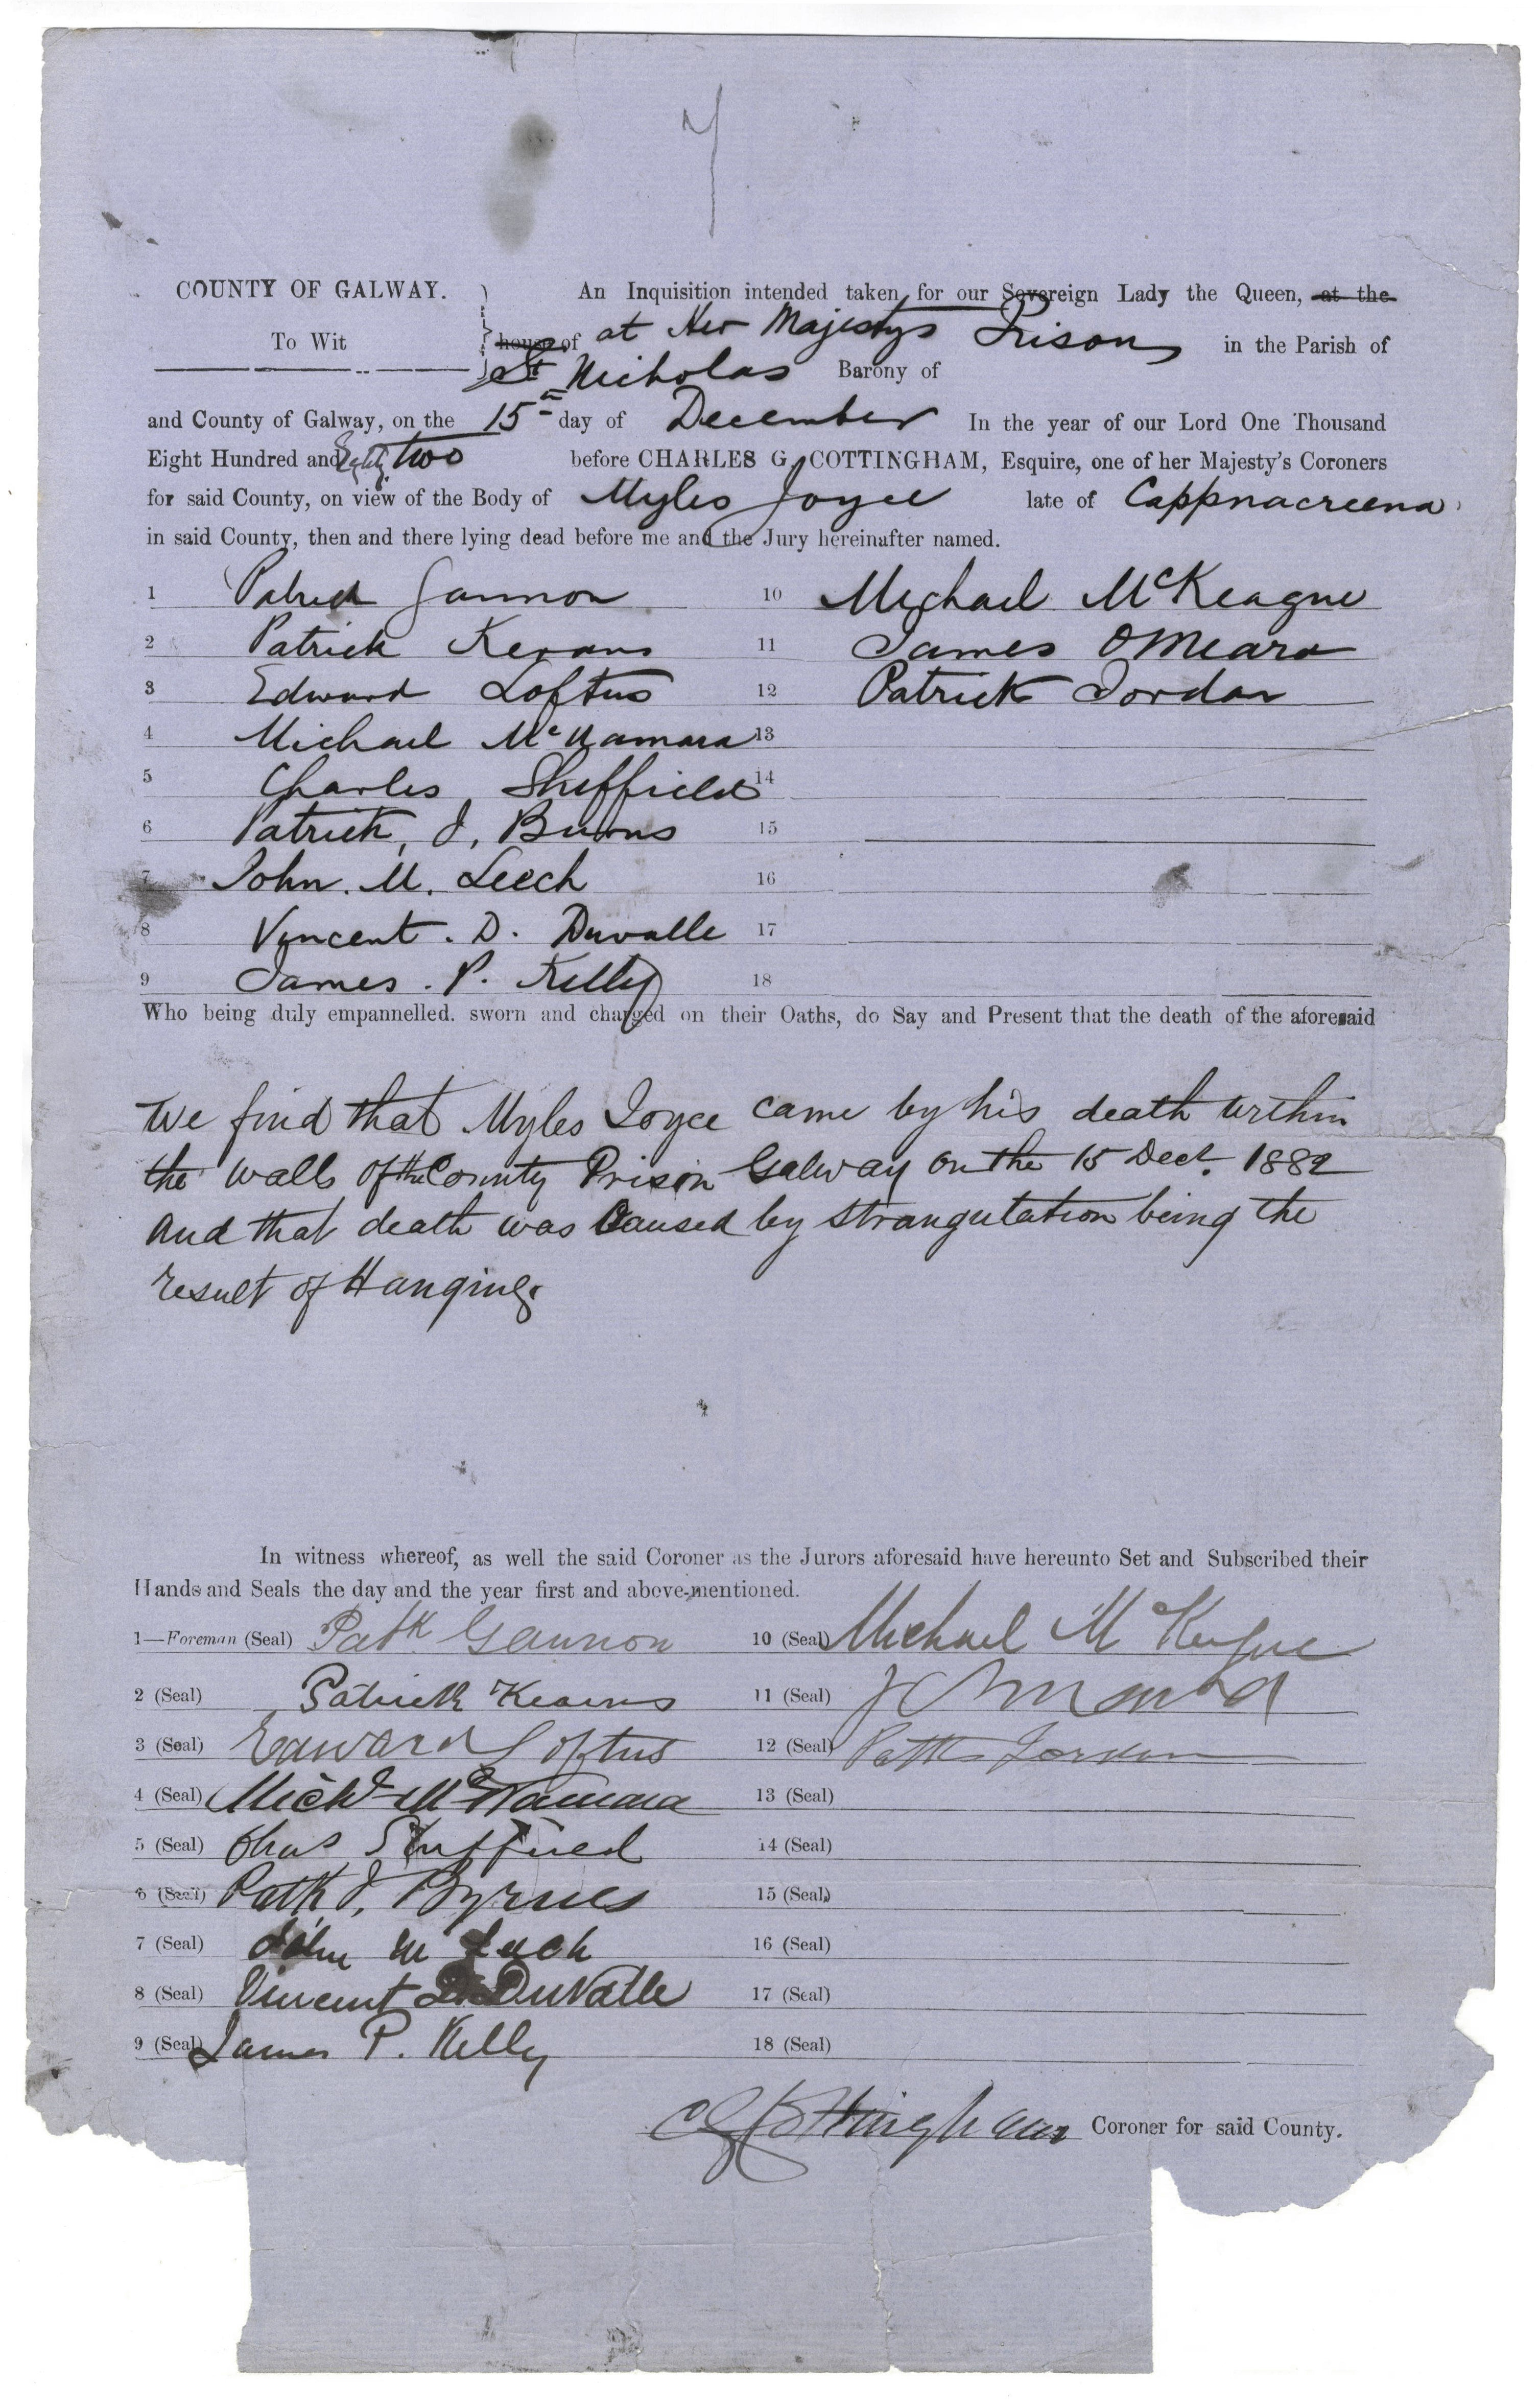 7
COUNTY OF GALWAY.
To Wit
An Inquisition intended taken for our Sovereign Lady the Queen, at the
house of at Her Majestys Prison in the Parish of
St Nicholas Barony of
and County of Galway, on the 15th day of December In the year of our Lord One Thousand
Eight Hundred and Eighty two before CHARLES G. COTTINGHAM, Esquire, one of her Majesty's Coroners
for said County, on view of the Body of Myles Joyce late of Cappnacreena
in said County, then and there lying dead before me and the Jury hereinafter named.
1 Patrick Gannon 10 Michael McKeague
2 Patrick Kerans 11 James OMeara
3 Edward Loftus 12 Patrick Jordan
4 Michael McNamara 13
5 Charles Sheffield 14
6 Patrick, J, Burns 15
7 John. M. Leech 16
8 Vincent. D. Duvalle 17
9 James. P. Kelly 18
Who being duly empannelled. sworn and charged on their Oaths, do Say and Present that the death of the aforesaid
We find that Myles Joyce came by his death within
the walls of the County Prison Galway on the 15 Dect. 1882
and that death was Caused by strangulation being the
result of Hanging.
In witness whereof, as well the said Coroner as the Jurors aforesaid have hereunto Set and Subscribed their
Hands and Seals the day and the year first and above-mentioned.
1—Foreman (Seal) Patk Gannon 10 (Seal) Michael McKeague
2 (Seal) Patrick Kearns 11 (Seal) J OMeara
3 (Seal) Edward Loftus 12 (Seal) Patk Jordan
4 (Seal) Michl McNamara 13 (Seal)
5 (Seal) Chas Sheffield 14 (Seal)
6 (Seal) Patk J, Byrnes 15 (Seal)
7 (Seal) John M Leech 16 (Seal)
8 (Seal) Vincent D. DuValle 17 (Seal)
9 (Seal) James P. Kelly 18 (Seal)
CG Cottingham Coroner for said County.